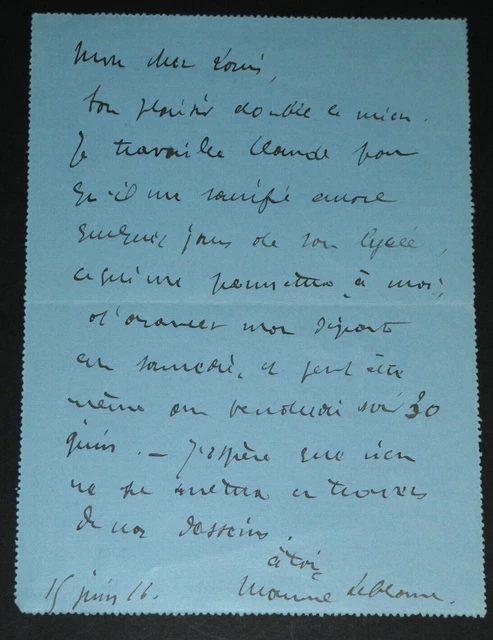 Mon cher Louis,
ton plaisir double le mien.
Je travaille Claude pour
qu'il me sacrifie encore
quelques jours de son lycée,
ce qui me permettra, à moi,
d'avancer mon départ
au samedi, et peut être
même au vendredi soir 30
juin. — J'espère que rien
ne se mettra en travers
de nos desseins.
à toi
15 juin 16. Maurice Leblanc.